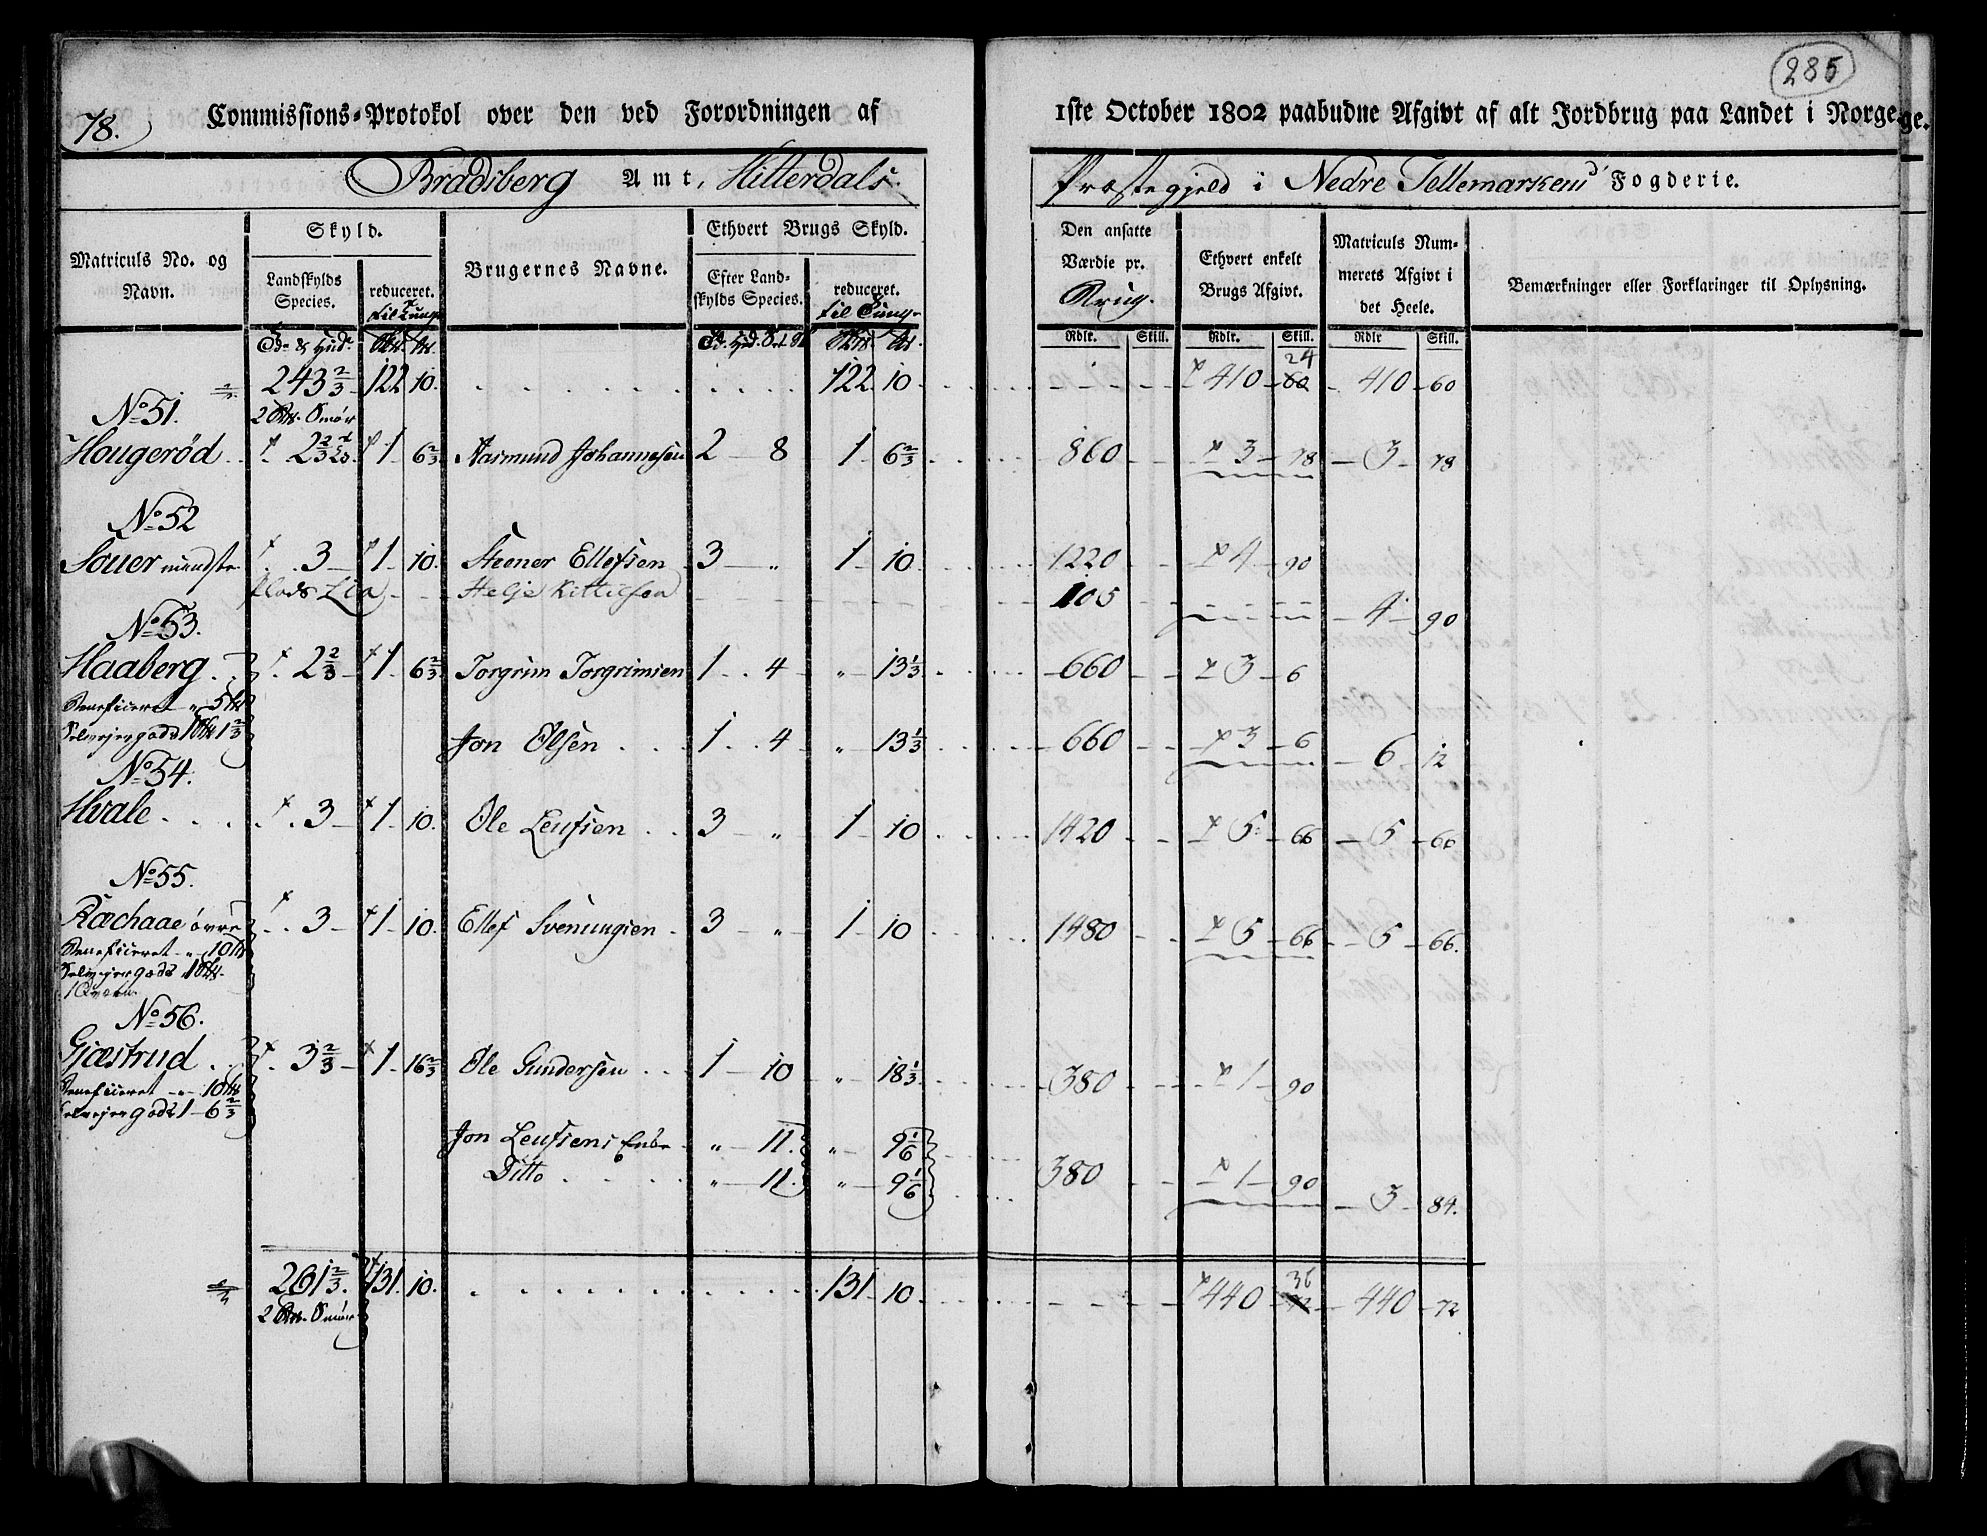 285
78.
Commissions-Protokol over den ved Forordningen af 1ste October 1802 paabudne Afgivt af alt Jordbrug paa Landet i Norge.
Bradsberg Amt, Hitterdals Præstegjeld i Nedre Tellemarkens Fogderie.
Matriculs No. og Navn.
Skyld.
Landskylds Species.
reduceret. til Tunge
Brugernes Navne.
Ethvert Brugs Skyld.
Efter Landskylds Species.
reduceret. til Tunge
Den ansatte Værdie pr. Brug.
Ethvert enkelt Brugs Afgivt.
Matriculs Nummerets Afgivt i det Heele.
Bemærkninger eller Forklaringer til Oplysning.
Rdlr. Skill. Rdlr. Skill. Rdlr Skill.
243 2/3 122 10. 122 10 410 60 24 410 60
2 Smør
No 51.
Hougerød 2 2/3 1 6 2/3 Aasmund Johannesen 2 8 1 6 2/3 860 3 78 3 78
No 52
Souer mindste 3 1 10. Steener Ellefsen 3 " 1 10 1220 4 90
plads Lia Helje Kittilsen 105 4 90
No 53.
Haaberg 2 2/3 1 6 2/3 Torgrim Torgrimsen 1 4 " 13 1/3 660 3 6
Beneficeret " 5
Selvejergods 1 1 2/3 Jon Olsen 1 4 " 13 1/3 660 3 6 6 12
No 54.
Hvale 3 1 10. Ole Leufsen 3 " 1 10 1420 5 66 5 66
No 55.
Ræchaae øvre 3 1 10. Ellef Svenungsen 3 " 1 10 1480 5 66 5 66.
Beneficeret " 10
Selvejergods 1
1 Qværn
No 56.
Gjæstrud 3 2/3 1 16 2/3 Ole Gundersen 1 10 " 18 1/3 380 1 90
Beneficeret " 10
Selvejergods 1 6 2/3
Jon Leufsens Enke " 11. " 9 1/6
Ditto " 11. " 9 1/6 380 1 90 3 84.
261 2/3. 131. 10. 131 10 440 72 36 440 72
2 Smør